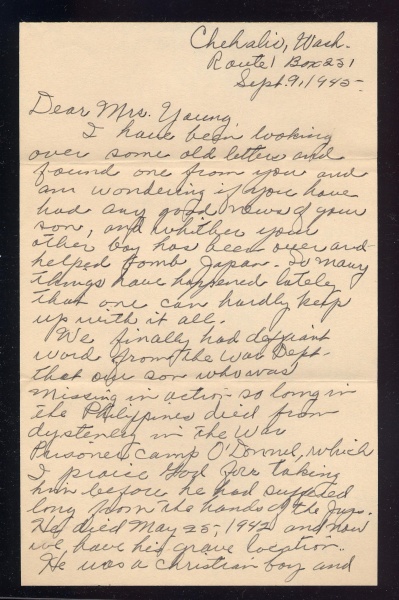 Chehalis, Wash.
Route 1 Box 251
Sept. 9, 1945
Dear Mrs. Young,
I have been looking
over some old letters and
found one from you and
am wondering if you have
had any good news of your
son, and whither your
other boy has been over and
helped bomb Japan. So many
things have happened lately
that one can hardly keep
up with it all.
We finally had
word from the War Dept.
that our son who was
missing in action so long in
the Philipines died from
dystenery in the War
Prisoner Camp O'Donnel, which
I praise God for taking
him before he had suffered
long from the hands of the Japs.
He died May 25, 1942 and now
we have his grave location.
He was a Christian boy and